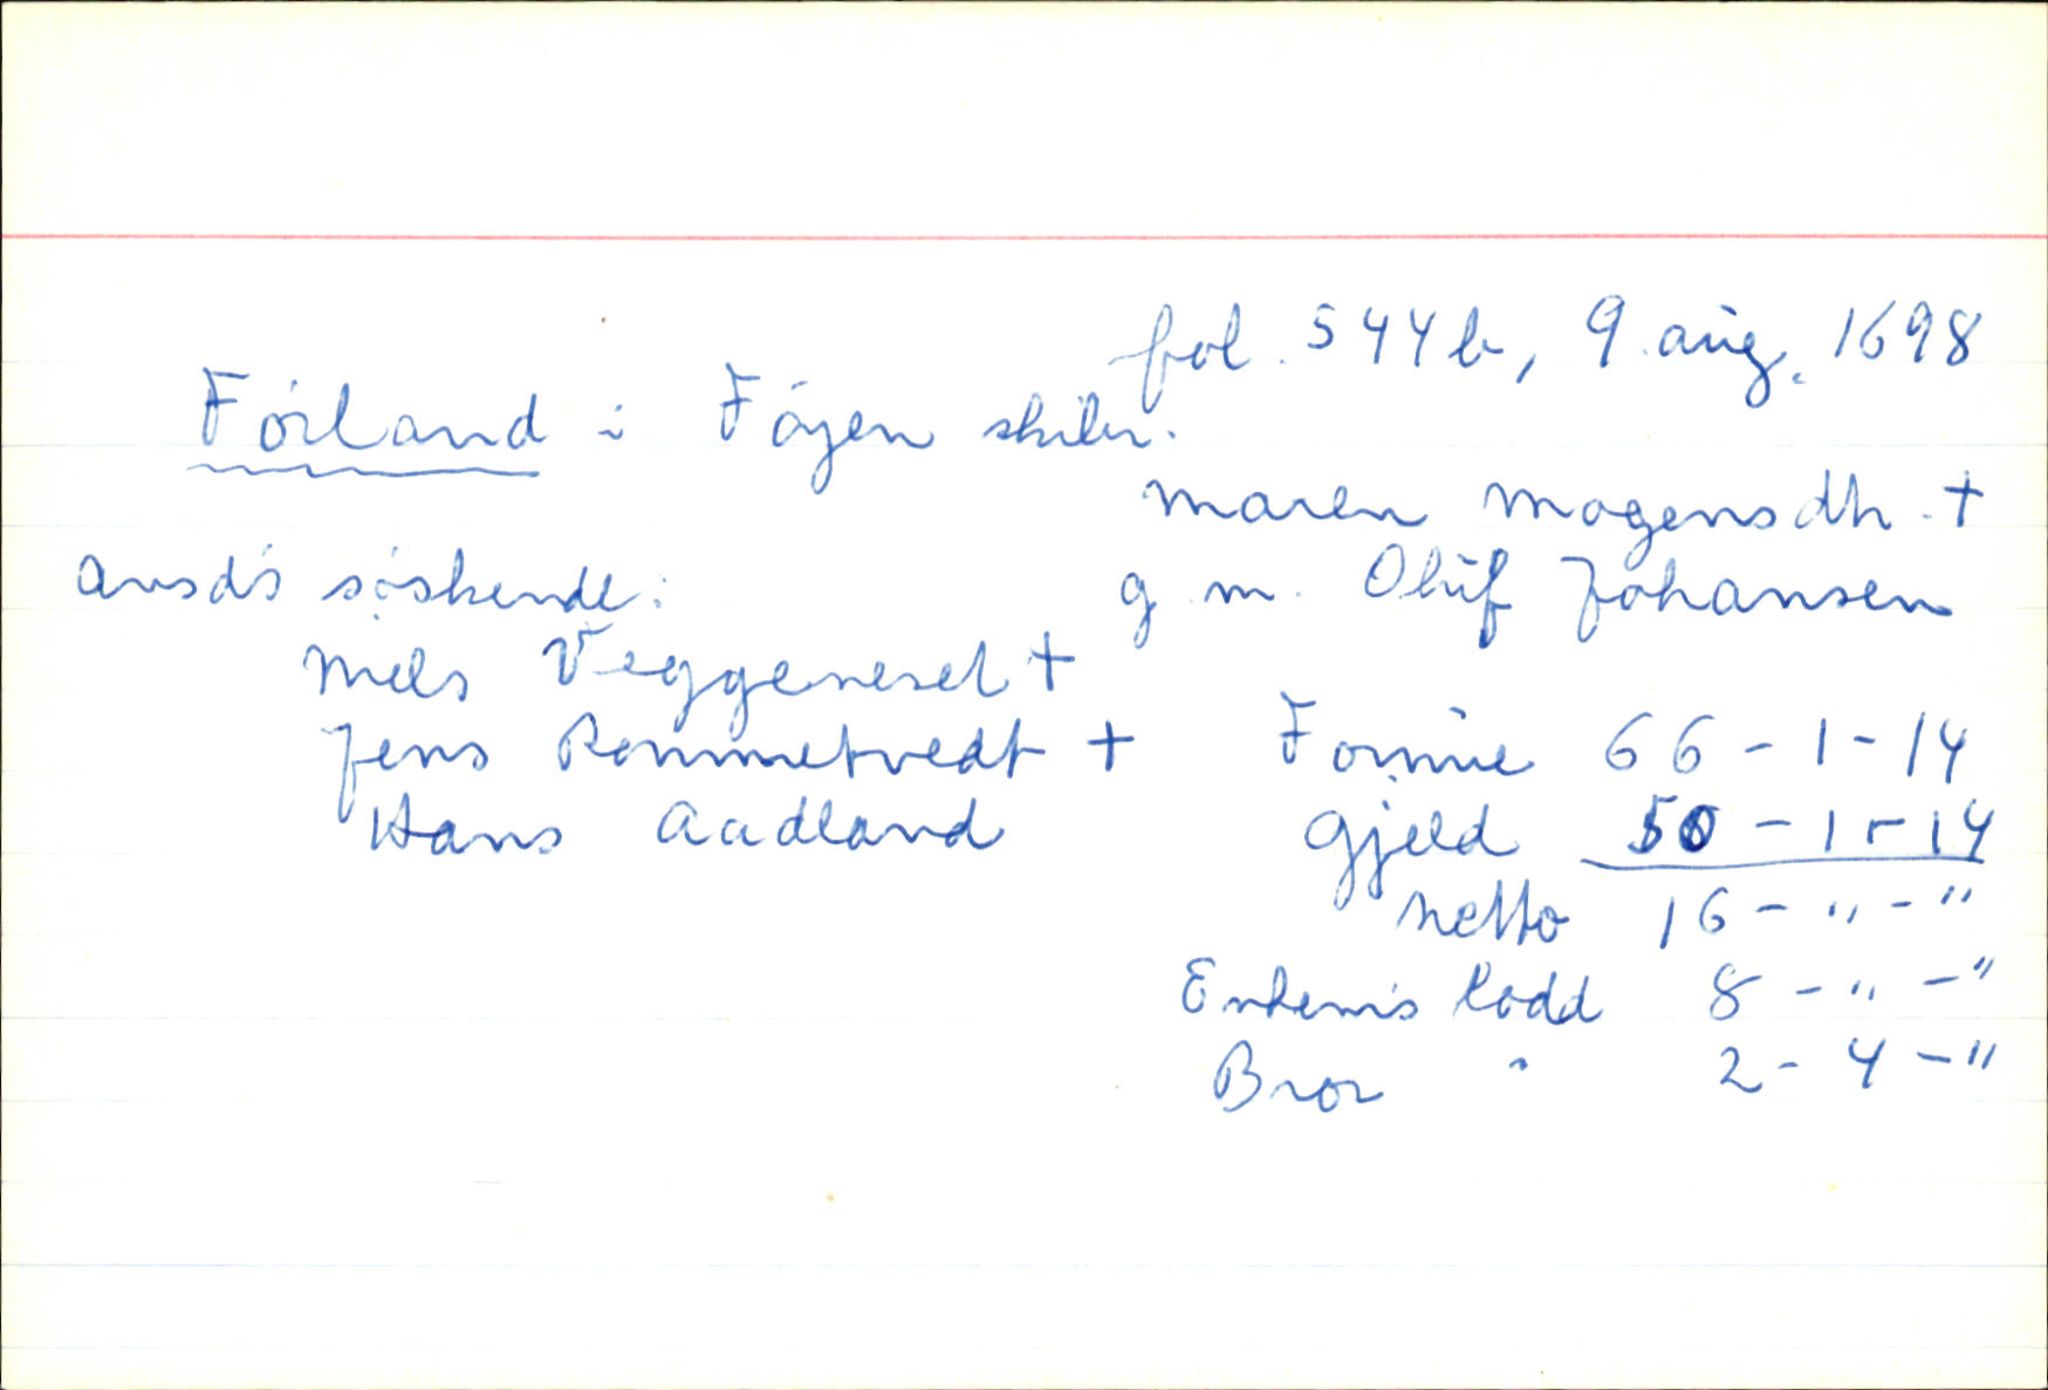 fol. 544b, 9. aug. 1698
Förland i Föyen skibr.
Maren Mogensdtr. +
avsd's söskende:
g. m. Oluf Johansen
Niels Veggeneset +
Jens Rommetvedt + Formue 66-1-14
Hans Aadland Gjeld 50-1-14
Netto 16-"-"
Enkem's lodd 8-"-"
Bror " 2-4-"